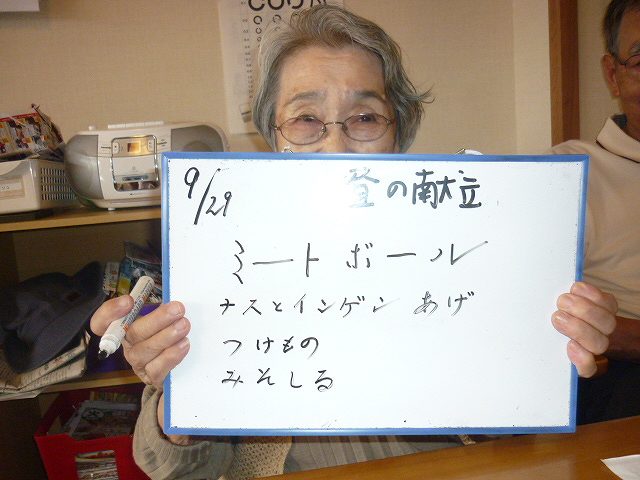 9/29 登の献立
ミートボール
ナスとインゲン あげ
つけもの
みそしる